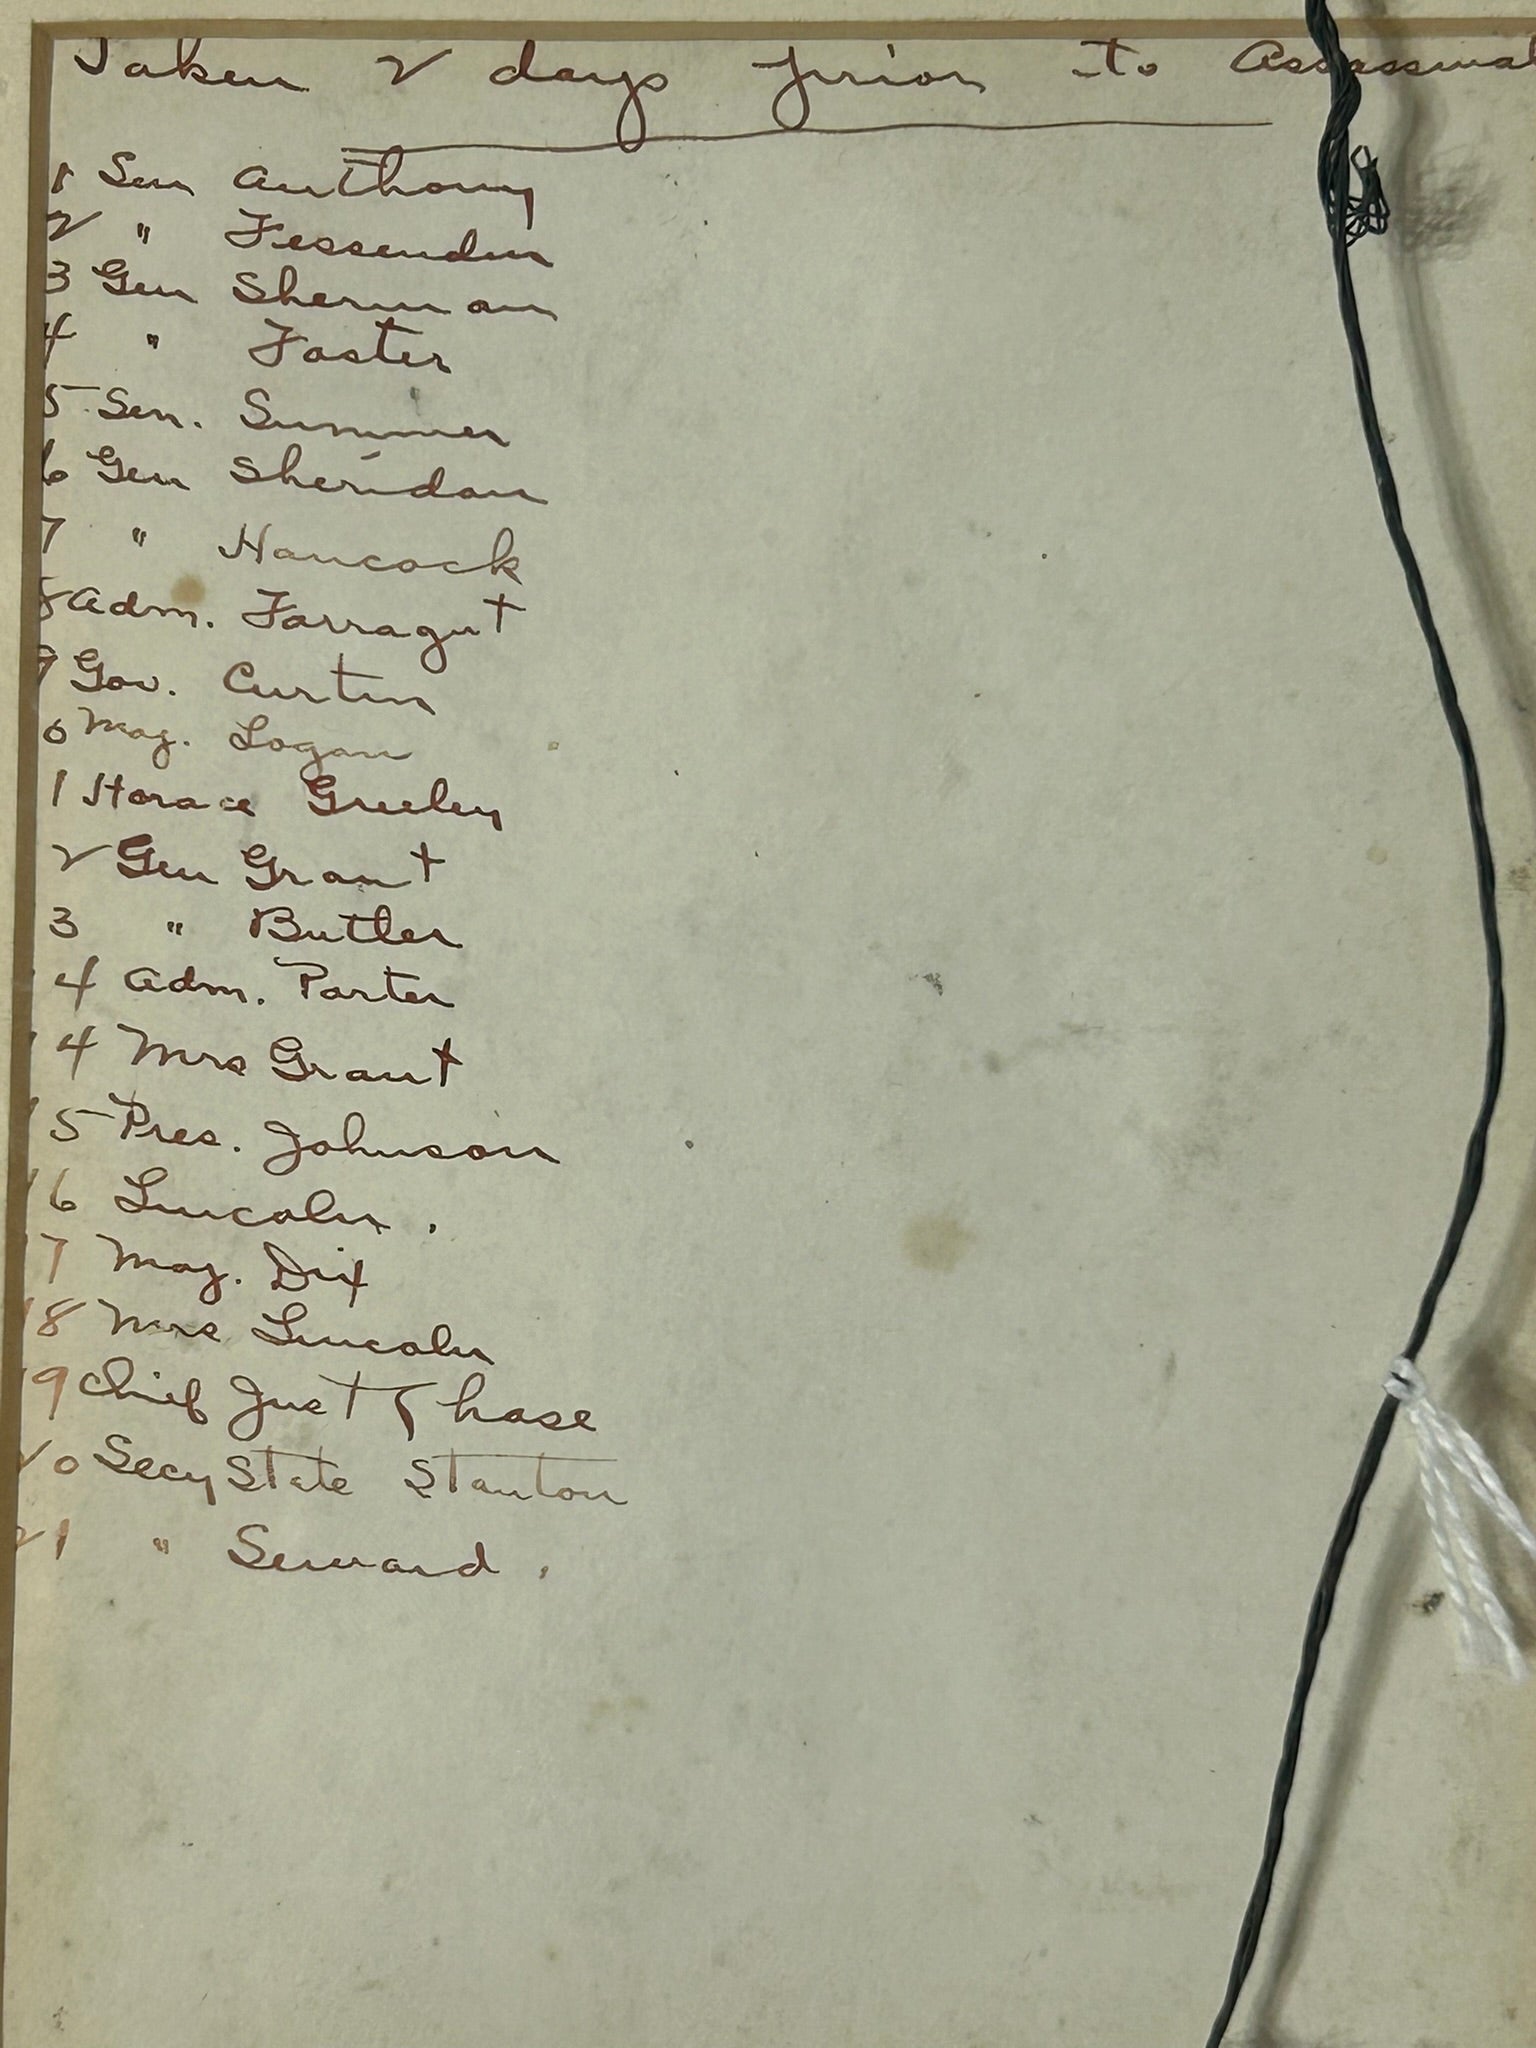 Taken 2 days prior to Assassinat
1 Sen Anthony
2 " Fessenden
3 Gen Sherman
4 " Foster
5 Sen. Summer
6 Gen Sheridan
7 " Hancock
8 Adm. Farragut
9 Gov. Curtin
0 Maj. Logan
1 Horace Greeley
2 Gen Grant
3 " Butler
14 Adm. Porter
14 Mrs Grant
15 Pres. Johnson
16 Lincoln.
17 Maj. Dix
18 Mrs Lincoln
19 Chief Just Chase
20 Secy State Stanton
21 " Seward.